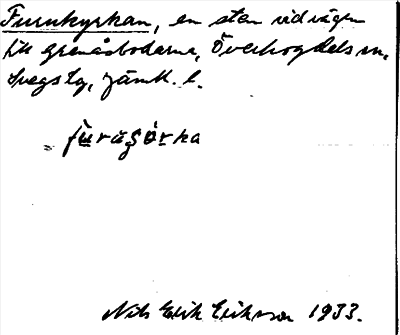 Furukyrkan, en sten vid vägen
till Grenåsbodarna, Överhogdels sn.
Svegs tg, Jämtl. l.
fùraʂörka
Nils Erik Eriksson 1933.